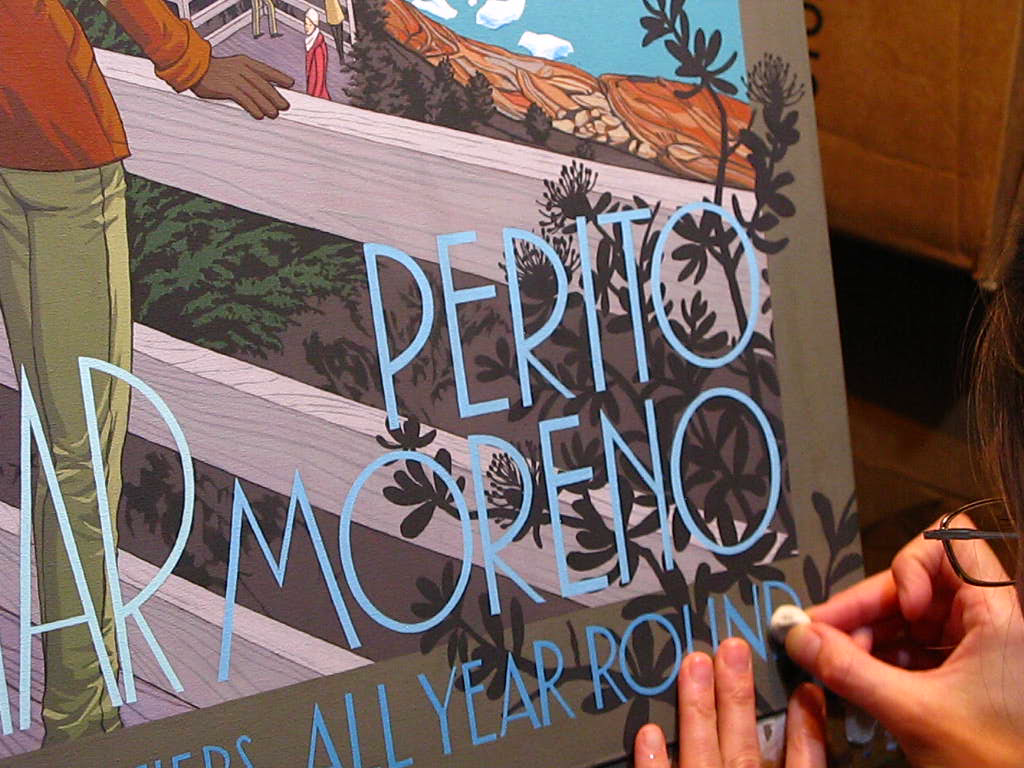 PERITO
MORENO
ALL YEAR ROUND